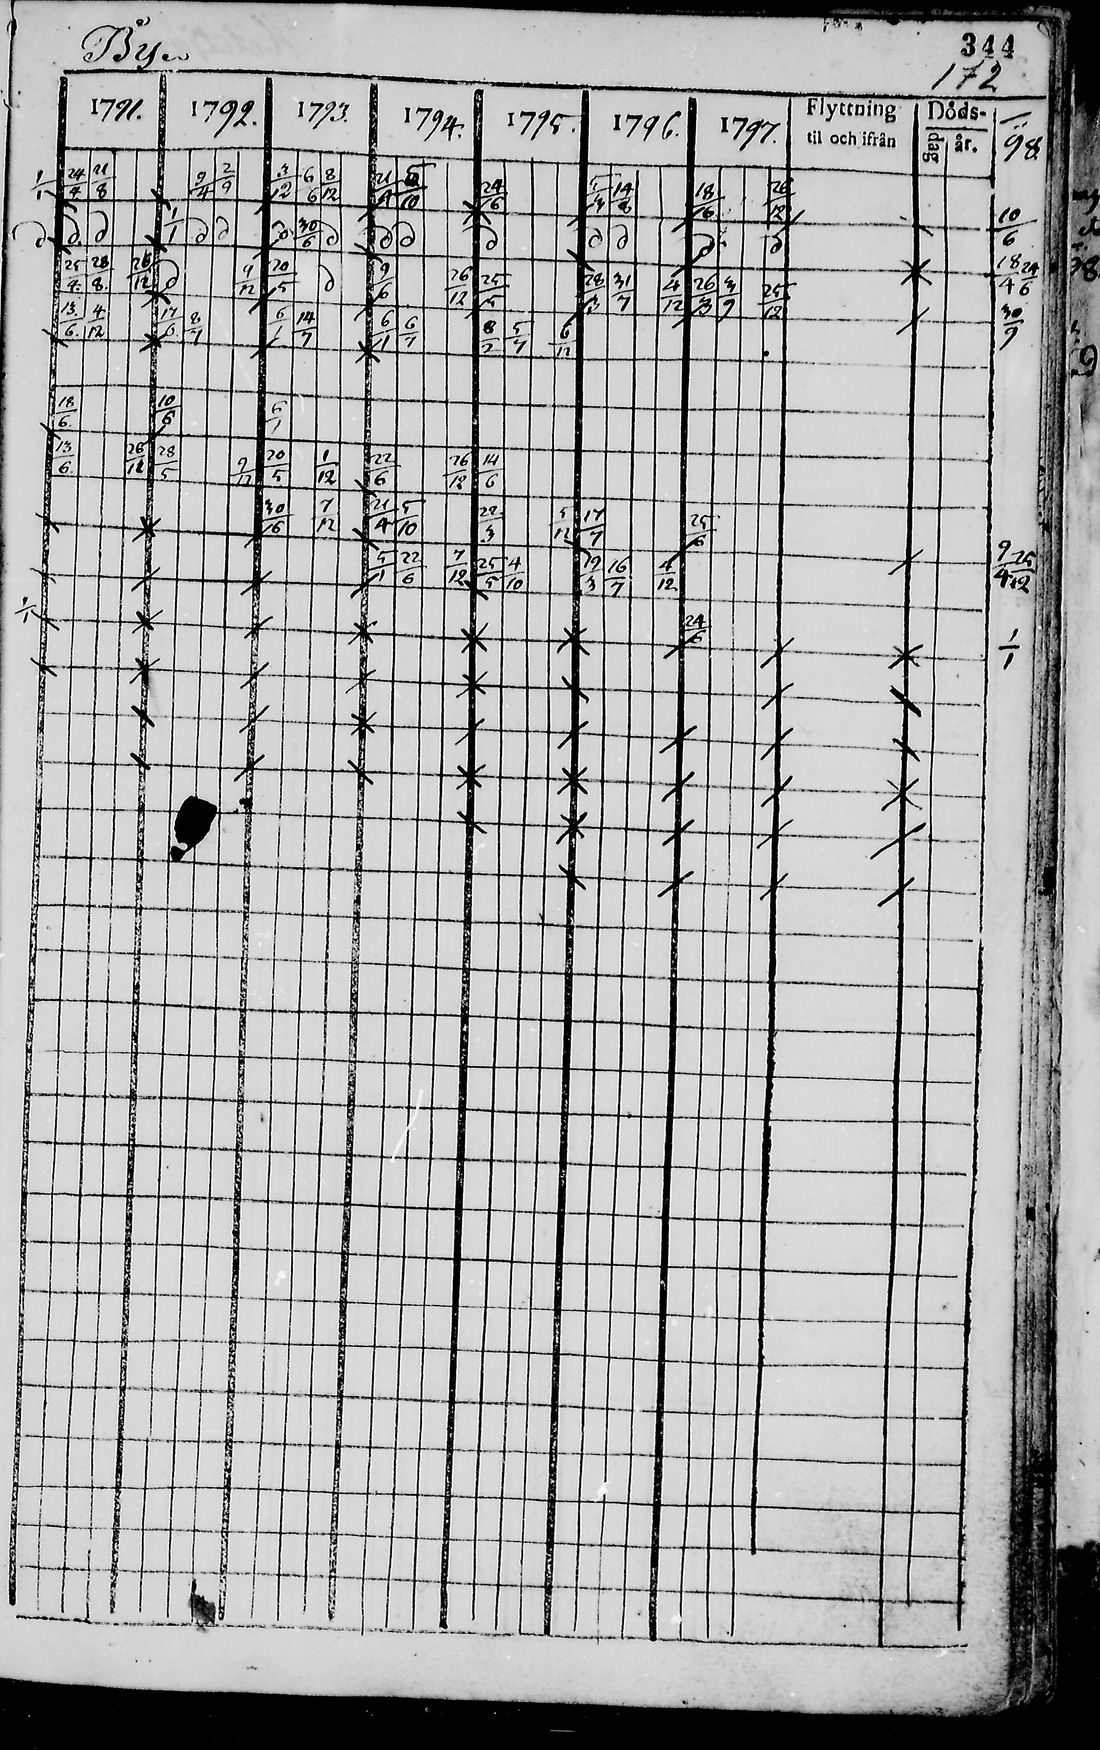 By
344
172
1791. 1792. 1793. 1794. 1795. 1796. 1797. Flyttning til och ifrån Döds- dag år. 98.
1/1 24/4 21/8 9/4 2/9 3/12 6/6 8/12 21/4 5/10 24/6 14/8 18/6 26/12 10/6
d d d 1/1 d d d 30/6 d d d d d d d d
25/4 28/8 26/12 d 9/12 20/5 d 9/6 26/12 25/5 28/3 31/7 4/12 26/3 3/9 25/12 18/4 24/6
13/6 4/12 17/6 8/7 6/1 14/7 6/1 6/7 5/7 6/12 30/9
18/6 10/6 6/1
13/6 26/12 28/5 9/12 20/5 1/12 22/6 26/12 14/6
30/6 7/12 21/4 5/10 22/3 5/12 17/7 25/6
5/1 22/6 7/12 25/5 4/10 29/3 16/7 4/12 9/4 25/12
1/1 24/6 1/1